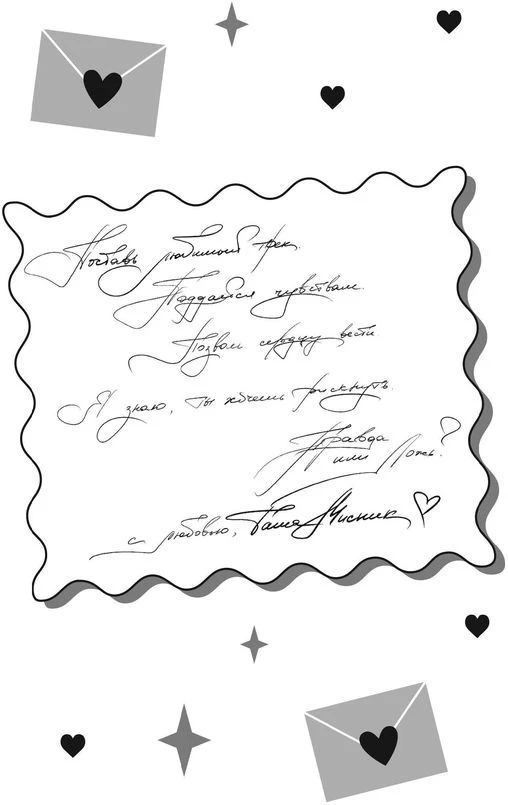 Поставь любимый трек.
Поддайся чувствам.
Позволь сердцу вести
Я знаю, ты хочешь рискнуть.
Правда
или Ложь?
с любовью, Таша Мисник